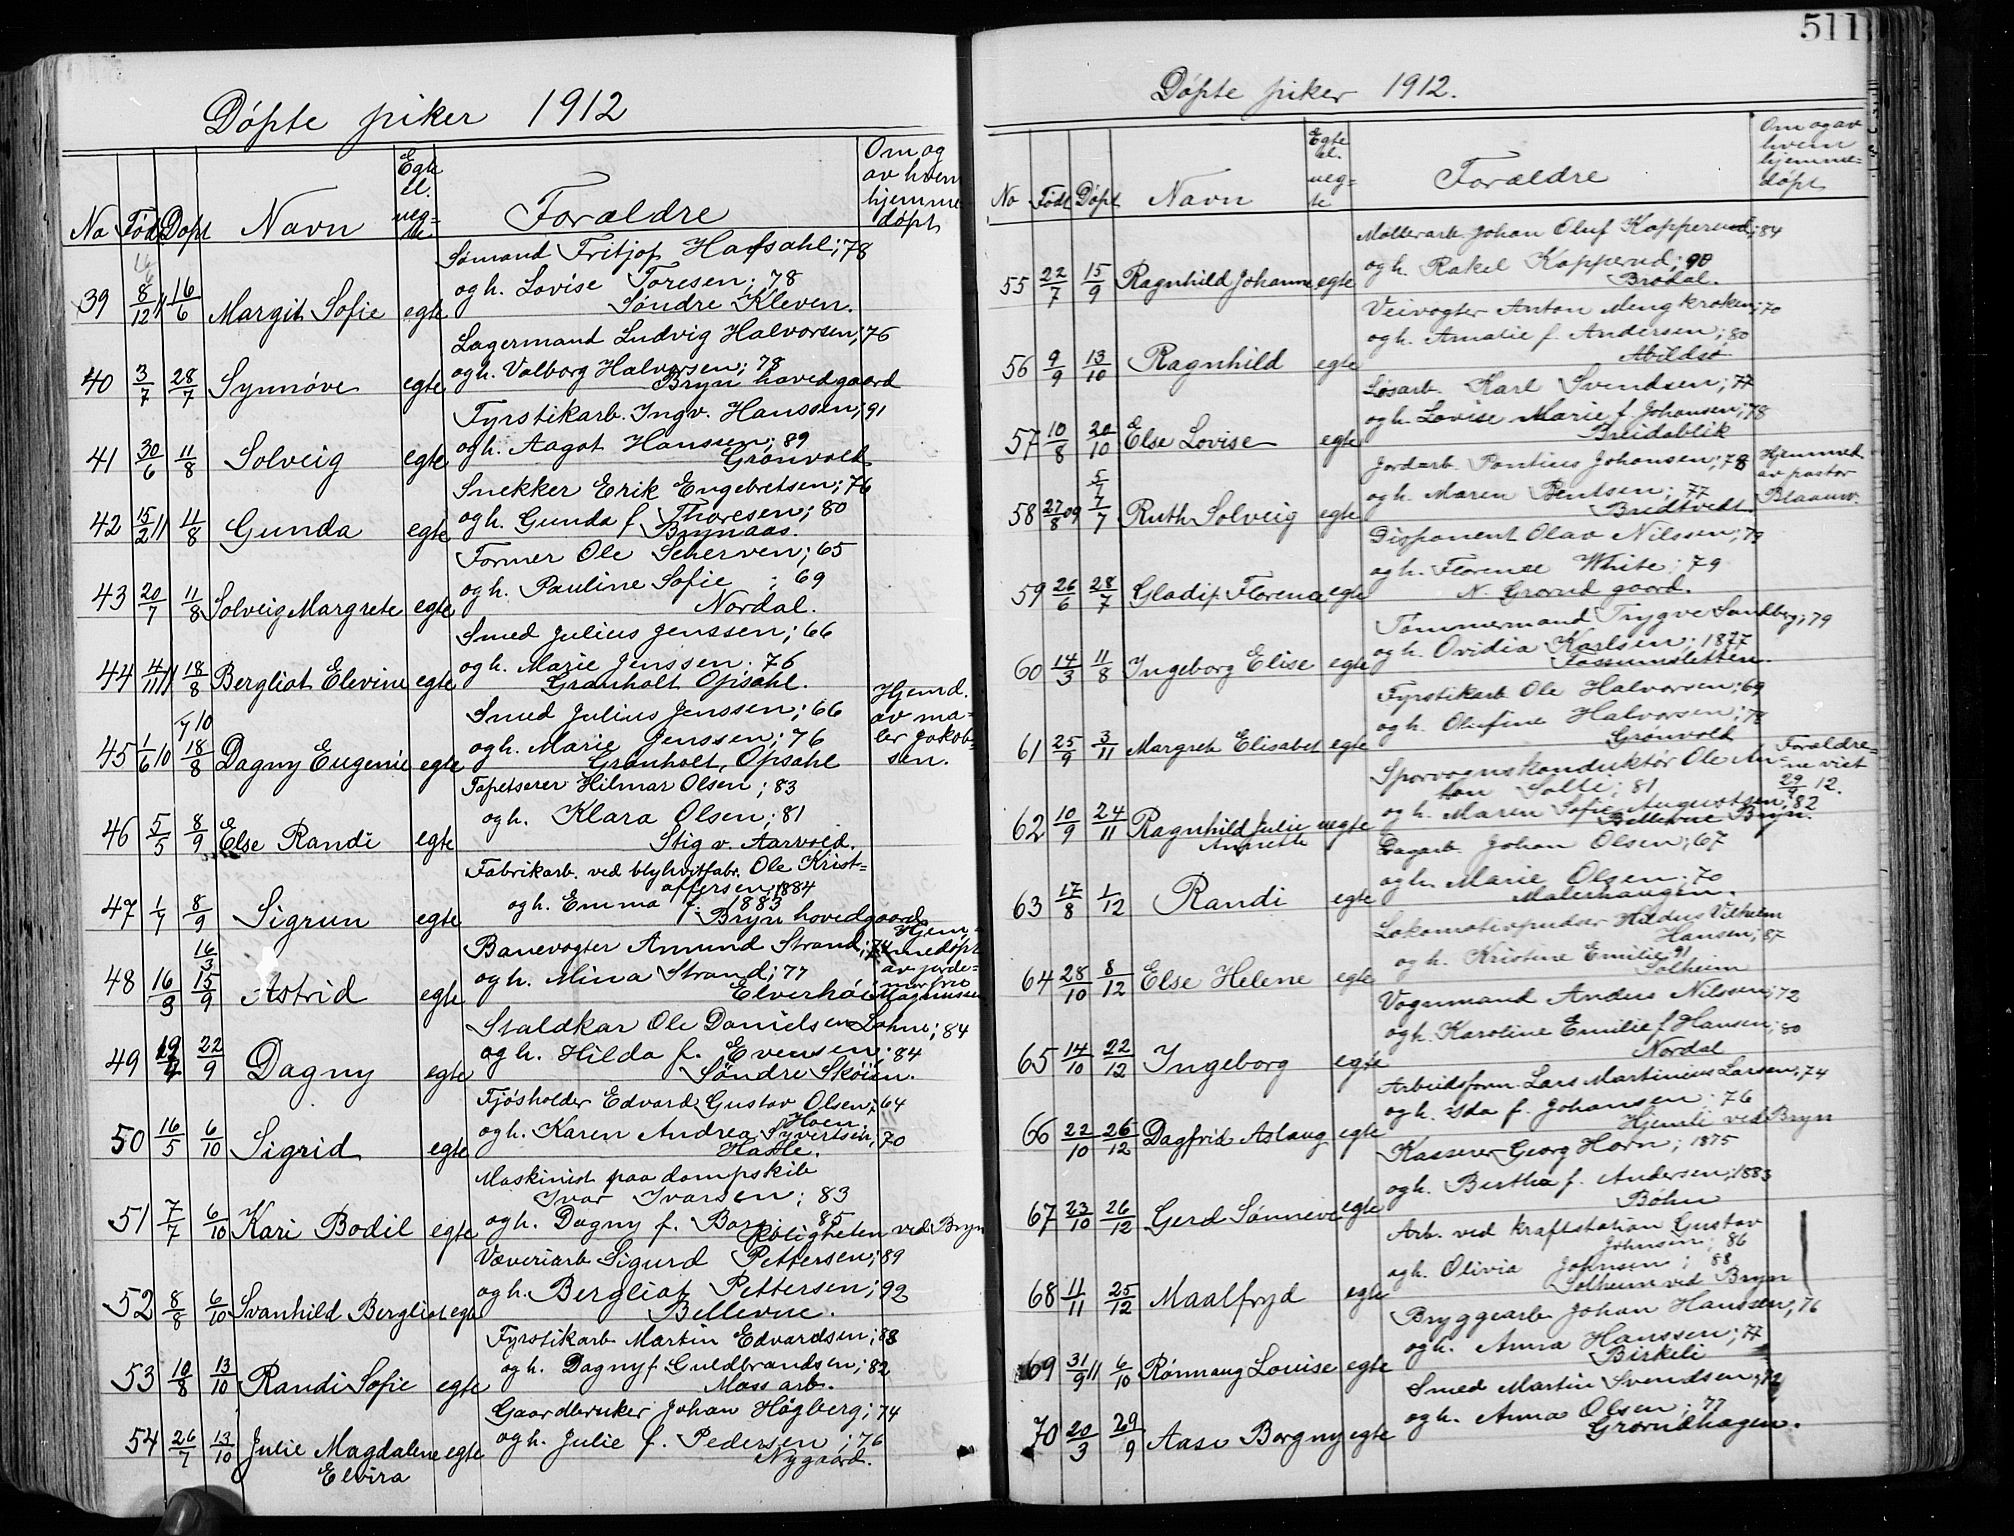 Døpte piker 1912
No Født Døpt Navn Egte el. ueg-te. Forældre Om og av hvem hjemme-døpt
Sømand Fritjof Hafsahl; 78
39 8/12 11 16/6 Margit Sofie egte og h. Lovise Toresen; 78
Søndre Kleven.
Lagermand Ludvig Halvorsen; 76
40 3/7 28/7 Synnøve egte og h. Valborg Halvorsen; 78
Bryn hovedgaard
Fyrstikarb. Ingv. Hanssen; 91
41 30/6 11/8 Solveig egte og h. Aagot Hanssen; 89
Grønvold
Snekker Erik Engebretsen; 76
42 15/2 11 11/8 Gunda egte og h. Gunda f. Thoresen; 80
Brynaas.
Former Ole Scherven; 65
43 20/7 11/8 Solveig Margrete egte og h. Pauline Sofie ; 69
Nordal.
Smed Julius Jenssen; 66
44 4/11 11 18/8 Bergliot Elevine egte og h. Marie Jenssen; 76
Granholt Opsahl.
Smed Julius Jenssen; 66 Hjemd. av ma-ler Jakob-sen.
45 1/6 10 18/8 Dagny Eugenie egte og h. Marie Jenssen; 76
Granholt, Opsahl
Tapetserer Hilmar Olsen; 83
46 5/5 8/9 Else Randi egte og h. Klara Olsen; 81
Stig v. Aarvold.
Fabrikarb. ved blyhvitfabr. Ole Krist-
offersen; 1884
47 1/7 8/9 Sigrun egte og h. Emma f. 1883
Bryn hovedgaard
Banevogter Amund Strand; 74 Hjem-medøpt av jorde-mor frø Magnussen
16/3
48 16/3 15/9 Astrid egte og h. Mina Strand; 77
Elverhøi
Staldkar Ole Danielsen Lohne; 84
49 19/7 22/9 Dagny egte og h. Hilda f. Evensen; 84
Søndre Skøien.
Fjøsholder Edvard Gustav Olsen; 64
Hoen
50 16/5 6/10 Sigrid egte og h. Karen Andrea Syvertsen; 70
Hasle.
Maskinist paa dampskib
Ivar Ivarsen; 83
51 7/7 6/10 Kari Bodil egte og h. Dagny f. 85
Roligheten ved Bryn
Væveriarb Sigurd Pettersen; 89
52 8/8 6/10 Svanhild Bergliot egte og h. Bergliot Pettersen; 92
Bellevue.
Fyrstikarb Martin Edvardsen; 88
53 10/8 13/10 Randi Sofie egte og h. Dagny f. Guldbrandsen; 82
Moss arb.
Gaardbruker Johan Høgberg; 74
54 26/7 13/10 Julie Magdalene egte og h. Julie f. Pedersen; 76
Elvira Nygaard.
511
Døpte piker 1912.
No Født Døpt Navn Egte el. ueg-te Forældre Om og av hvem hjemme-døpt
Møllerarb. Johan Oluf Kopperud; 84
55 22/7 15/9 Ragnhild Johanne egte og h. Rakel Kopperud; 90
Brødal.
Veivogter Anton Mengkroken; 70
56 9/9 13/10 Ragnhild egte og h. Amalie f. Andersen; 80
Abildsø
Løsarb. Karl Svendsen; 77
57 10/8 20/10 Else Lovise egte og h. Lovise Marie f. Johansen; 78
Breidablik
Jordarb. Pontius Johansen; 78 Hjemmed. av pastor Blaauw.
58 27/8 09 7/7 Ruth Solveig egte og h. Maren Bentsen; 77
Bredtvedt.
Disponent Olav Nilssen; 79
59 26/6 28/7 Gladip Florence egte og h. Florence White; 79
N. Grorud gaard.
Tømmermand Trygve Sandberg; 79
60 14/3 11/8 Ingeborg Elise egte og h. Ovidia Karlsen; 1877
Fossumsletten.
Fyrstikarb Ole Halvorsen; 69
61 25/9 3/11 Margrete Elisabet egte og h. Olefine Halvorsen; 78
Grønvold
Sporvognskonduktør Ole An- Forældre-ne viet 29/9 12.
ton Solli; 81
62 10/9 24/11 Ragnhild Julie uegte og h. Maren Sofie Augustsen; 82
Annette Bellevue Bryn.
Sagarb. Johan Olsen; 67
63 17/8 1/12 Randi egte og h. Marie Olsen; 70
Malerhaugen.
Lokomotivpudser Hildus Vilhelm
Hansen; 87
64 28/10 8/12 Else Helene egte og h. Kristine Emilie 91
Solheim
Vognmand Anders Nilssen; 72
65 14/10 22/12 Ingeborg egte og h. Karoline Emilie f. Hansen; 80
Nordal
Arbeidsform. Lars Martinius Larsen; 74
66 22/10 26/12 Dagfrid Aslaug egte og h. Ida f. Johansen; 76
Hjemli ved Bryn
Kasserer Georg Horn; 1875
67 23/10 26/12 Gerd Sønneve egte og h. Bertha f. Andersen; 1883
Bøhn
Arb. ved kraftstation Gustav
Johnsen; 86
68 11/11 25/12 Maalfryd egte og h. Olivia Johnsen; 88
Solheim ved Bryn
Bryggearb Johan Hanssen; 76
69 31/9 11 6/10 Rønnaug Louise egte og h. Anna Hanssen; 77
Birkeli
Smed Martin Svendsen; 72
70 20/3 29/9 Aase Borgny egte og h. Anna Olsen; 77
Grorudhagen.